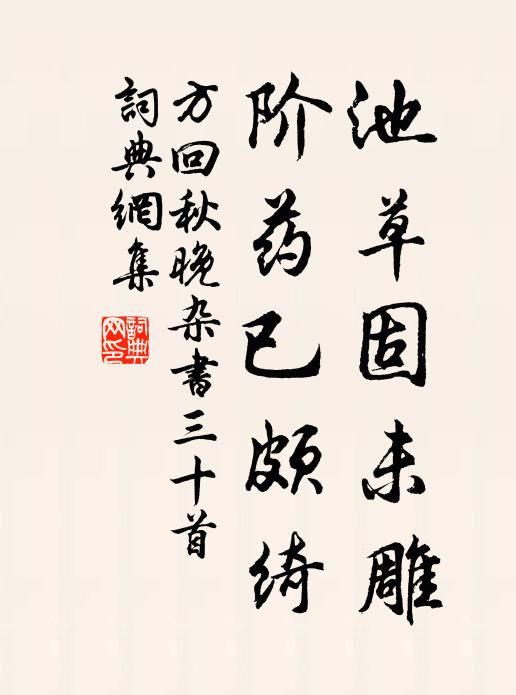 池草固未雕
阶药已颇绮
方回秋晚杂书三十首
詞典網集
詞典網印